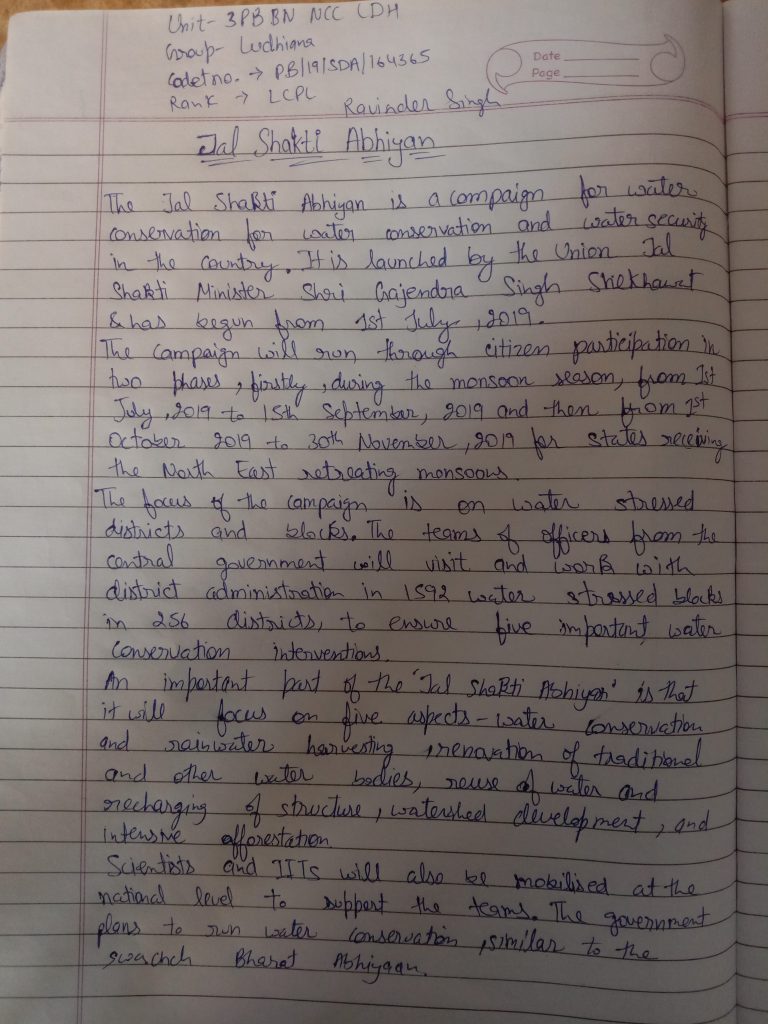 Unit- 3PB BN NCC LDH
Group- Ludhiana
Cadet no. → PB/19/SDA/164365
Rank → LCPL
Ravinder Singh
Date
Page
Jal Shakti Abhiyan
The Jal Shakti Abhiyan is a campaign for water
conservation for water conservation and water security
in the country. It is launched by the Union Jal
Shakti Minister Shri Gajendra Singh Shekhawat
& has begun from 1st July, 2019.
The campaign will run through citizen participation in
two phases, firstly, during the monsoon season, from 1st
July, 2019 to 15th September, 2019 and then from 1st
October 2019 to 30th November, 2019 for states receiving
the North East retreating monsoons.
The focus of the campaign is on water stressed
districts and blocks. The teams of officers from the
central government will visit and work with
district administration in 1592 water stressed blocks
in 256 districts, to ensure five important water
conservation interventions.
An important part of the 'Jal Shakti Abhiyan' is that
it will focus on five aspects - water conservation
and rainwater harvesting, renovation of traditional
and other water bodies, reuse of water and
recharging of structure, watershed development, and
intensive afforestation
Scientists and IITs will also be mobilised at the
national level to support the teams. The government
plans to run water conservation, similar to the
swachch Bharat Abhiyaan.